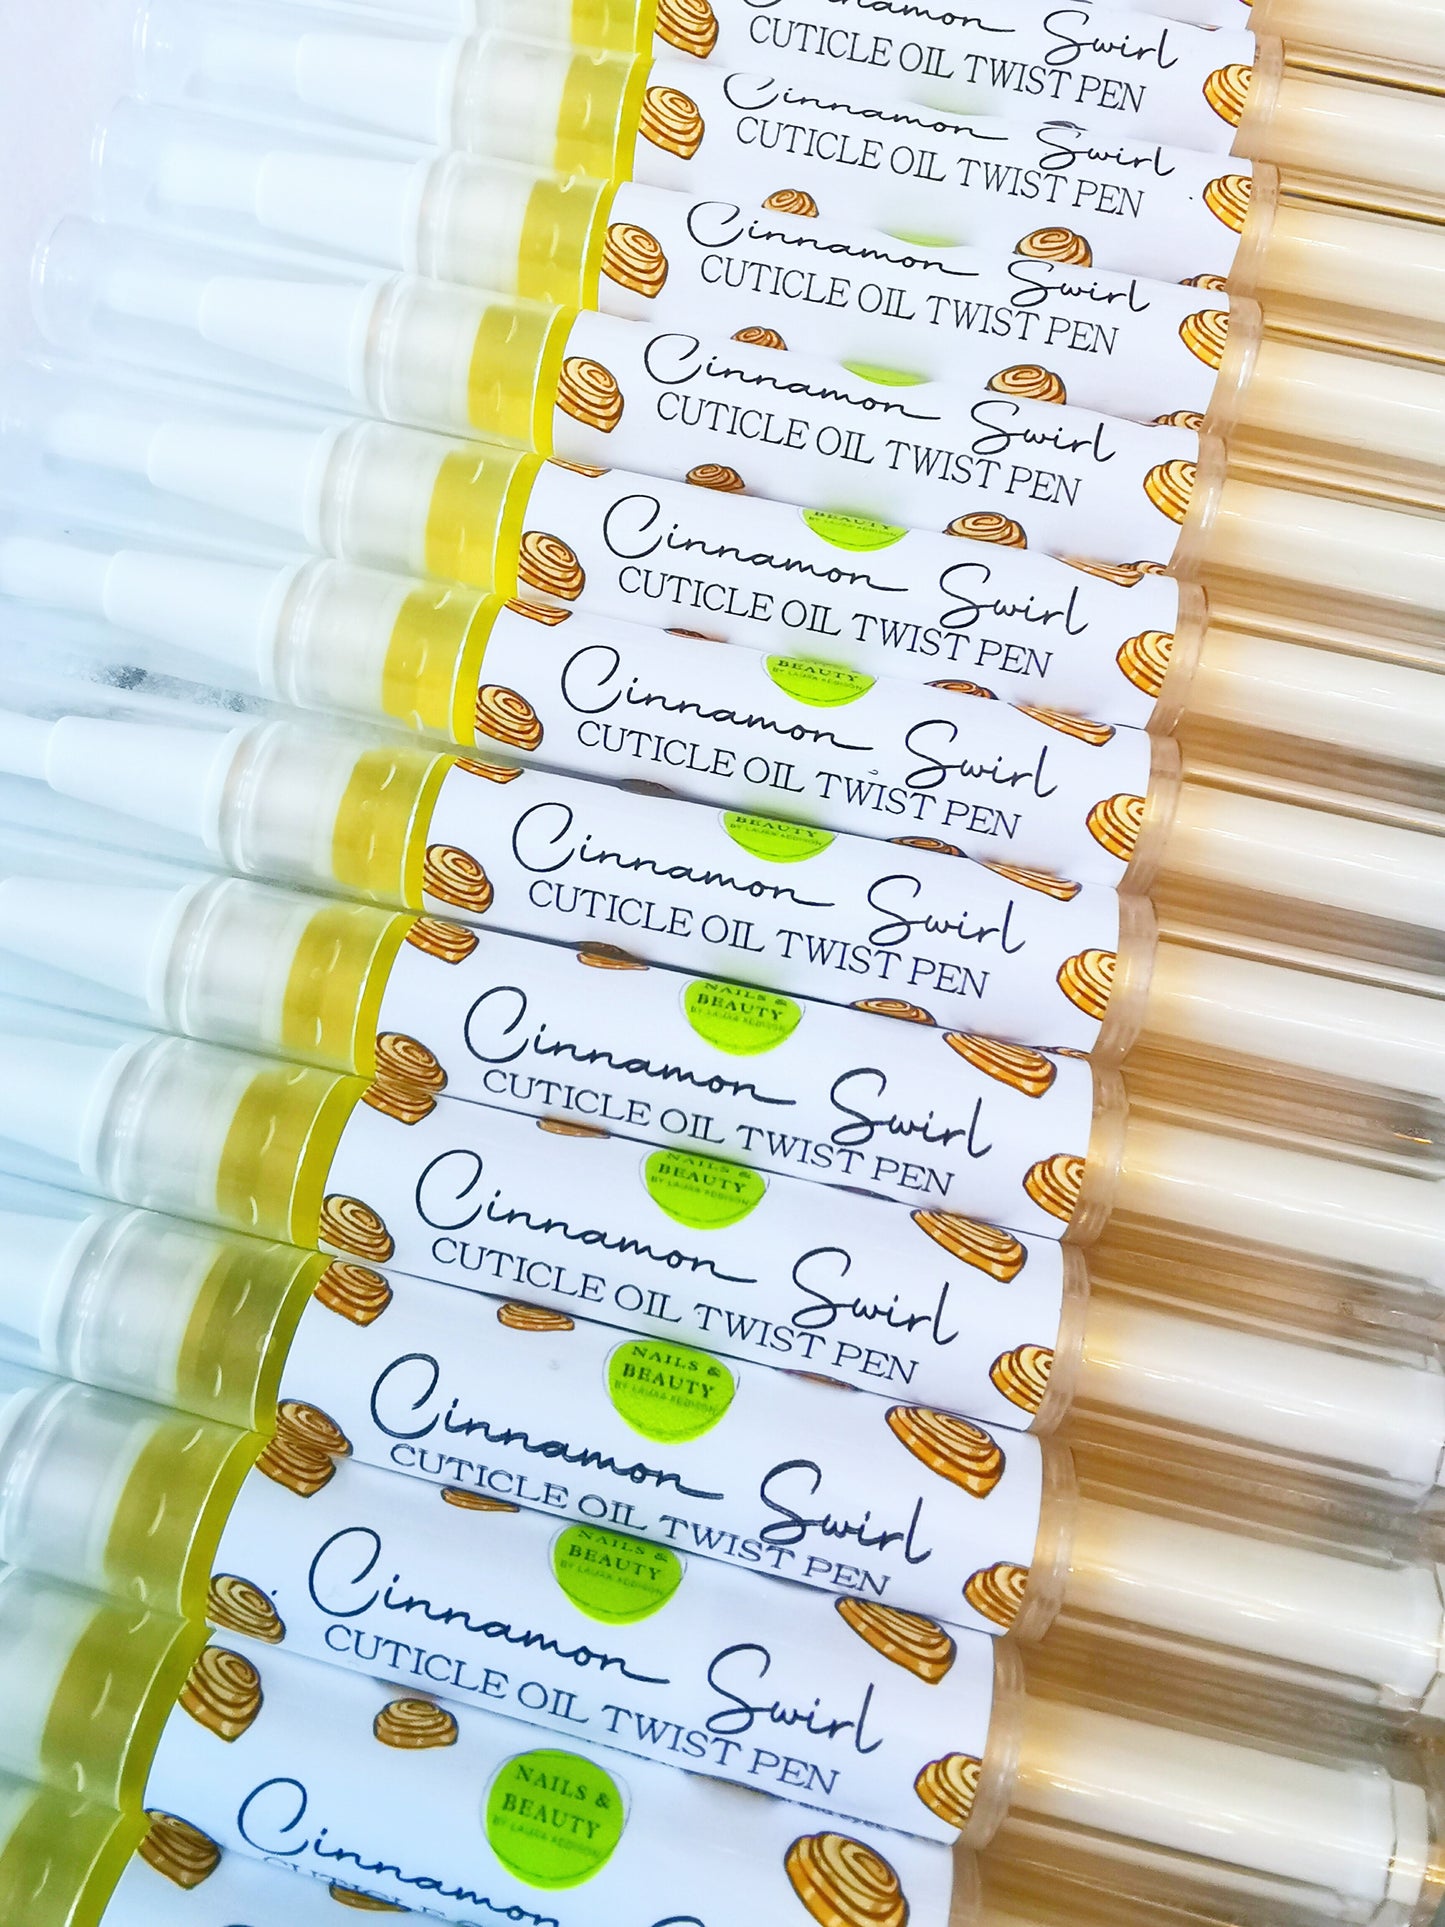 Cinnamon Swirl
CUTICLE OIL TWIST PEN
Cinnamon Swirl
CUTICLE OIL TWIST PEN
Cinnamon Swirl
CUTICLE OIL TWIST PEN
Cinnamon Swirl
CUTICLE OIL TWIST PEN
BEAUTY
Cinnamon Swirl
CUTICLE OIL TWIST PEN
BEAUTY
BY LAURA ADDISON
Cinnamon Swirl
CUTICLE OIL TWIST PEN
BEAUTY
BY LAURA ADDISON
Cinnamon Swirl
CUTICLE OIL TWIST PEN
NAILS &
BEAUTY
BY LAURA ADDISON
Cinnamon Swirl
CUTICLE OIL TWIST PEN
NAILS &
BEAUTY
BY LAURA ADDISON
Cinnamon Swirl
CUTICLE OIL TWIST PEN
NAILS &
BEAUTY
BY LAURA ADDISON
Cinnamon Swirl
CUTICLE OIL TWIST PEN
NAILS &
BEAUTY
BY LAURA ADDISON
Cinnamon Swirl
CUTICLE OIL TWIST PEN
NAILS &
BEAUTY
BY LAURA ADDISON
Cinnamon